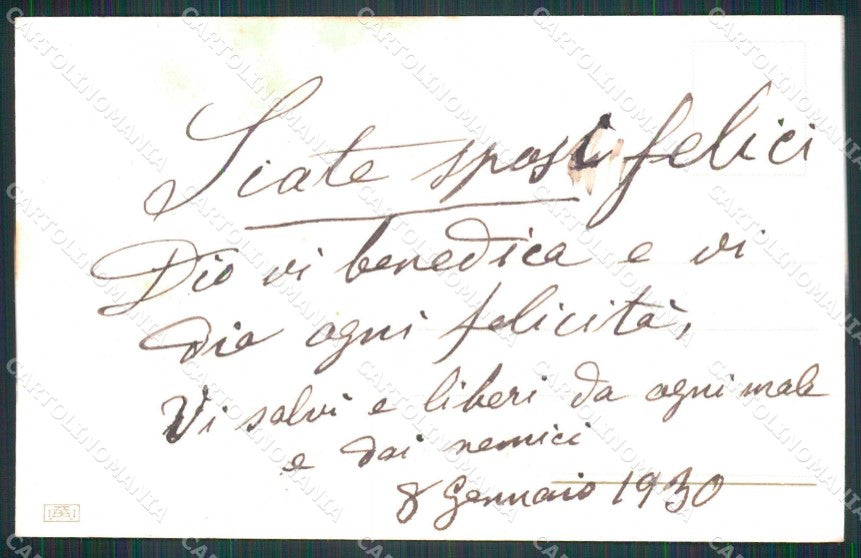 Siate sposi felici
Dio vi benedica e vi
die ogni felicità,
Vi salvi e liberi da ogni male
e dai nemici
8 Gennaio 1930
CARTOLINOMANIA